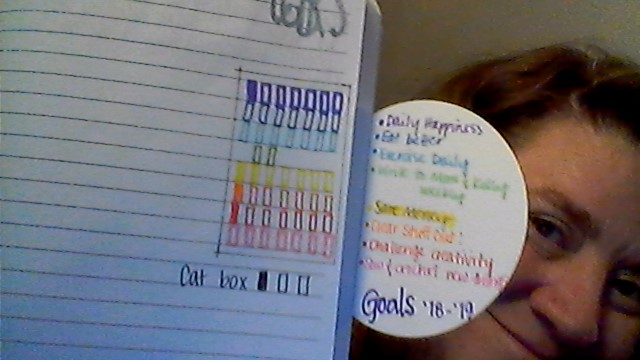 Cat box
• Daily Happiness
• Eat better
• Exercise Daily
• Write to Mom &
weekly
Save Money
• Clear Shelf Out!
• Challenge creativity
• Sew & crochet new
Goals '18-'19